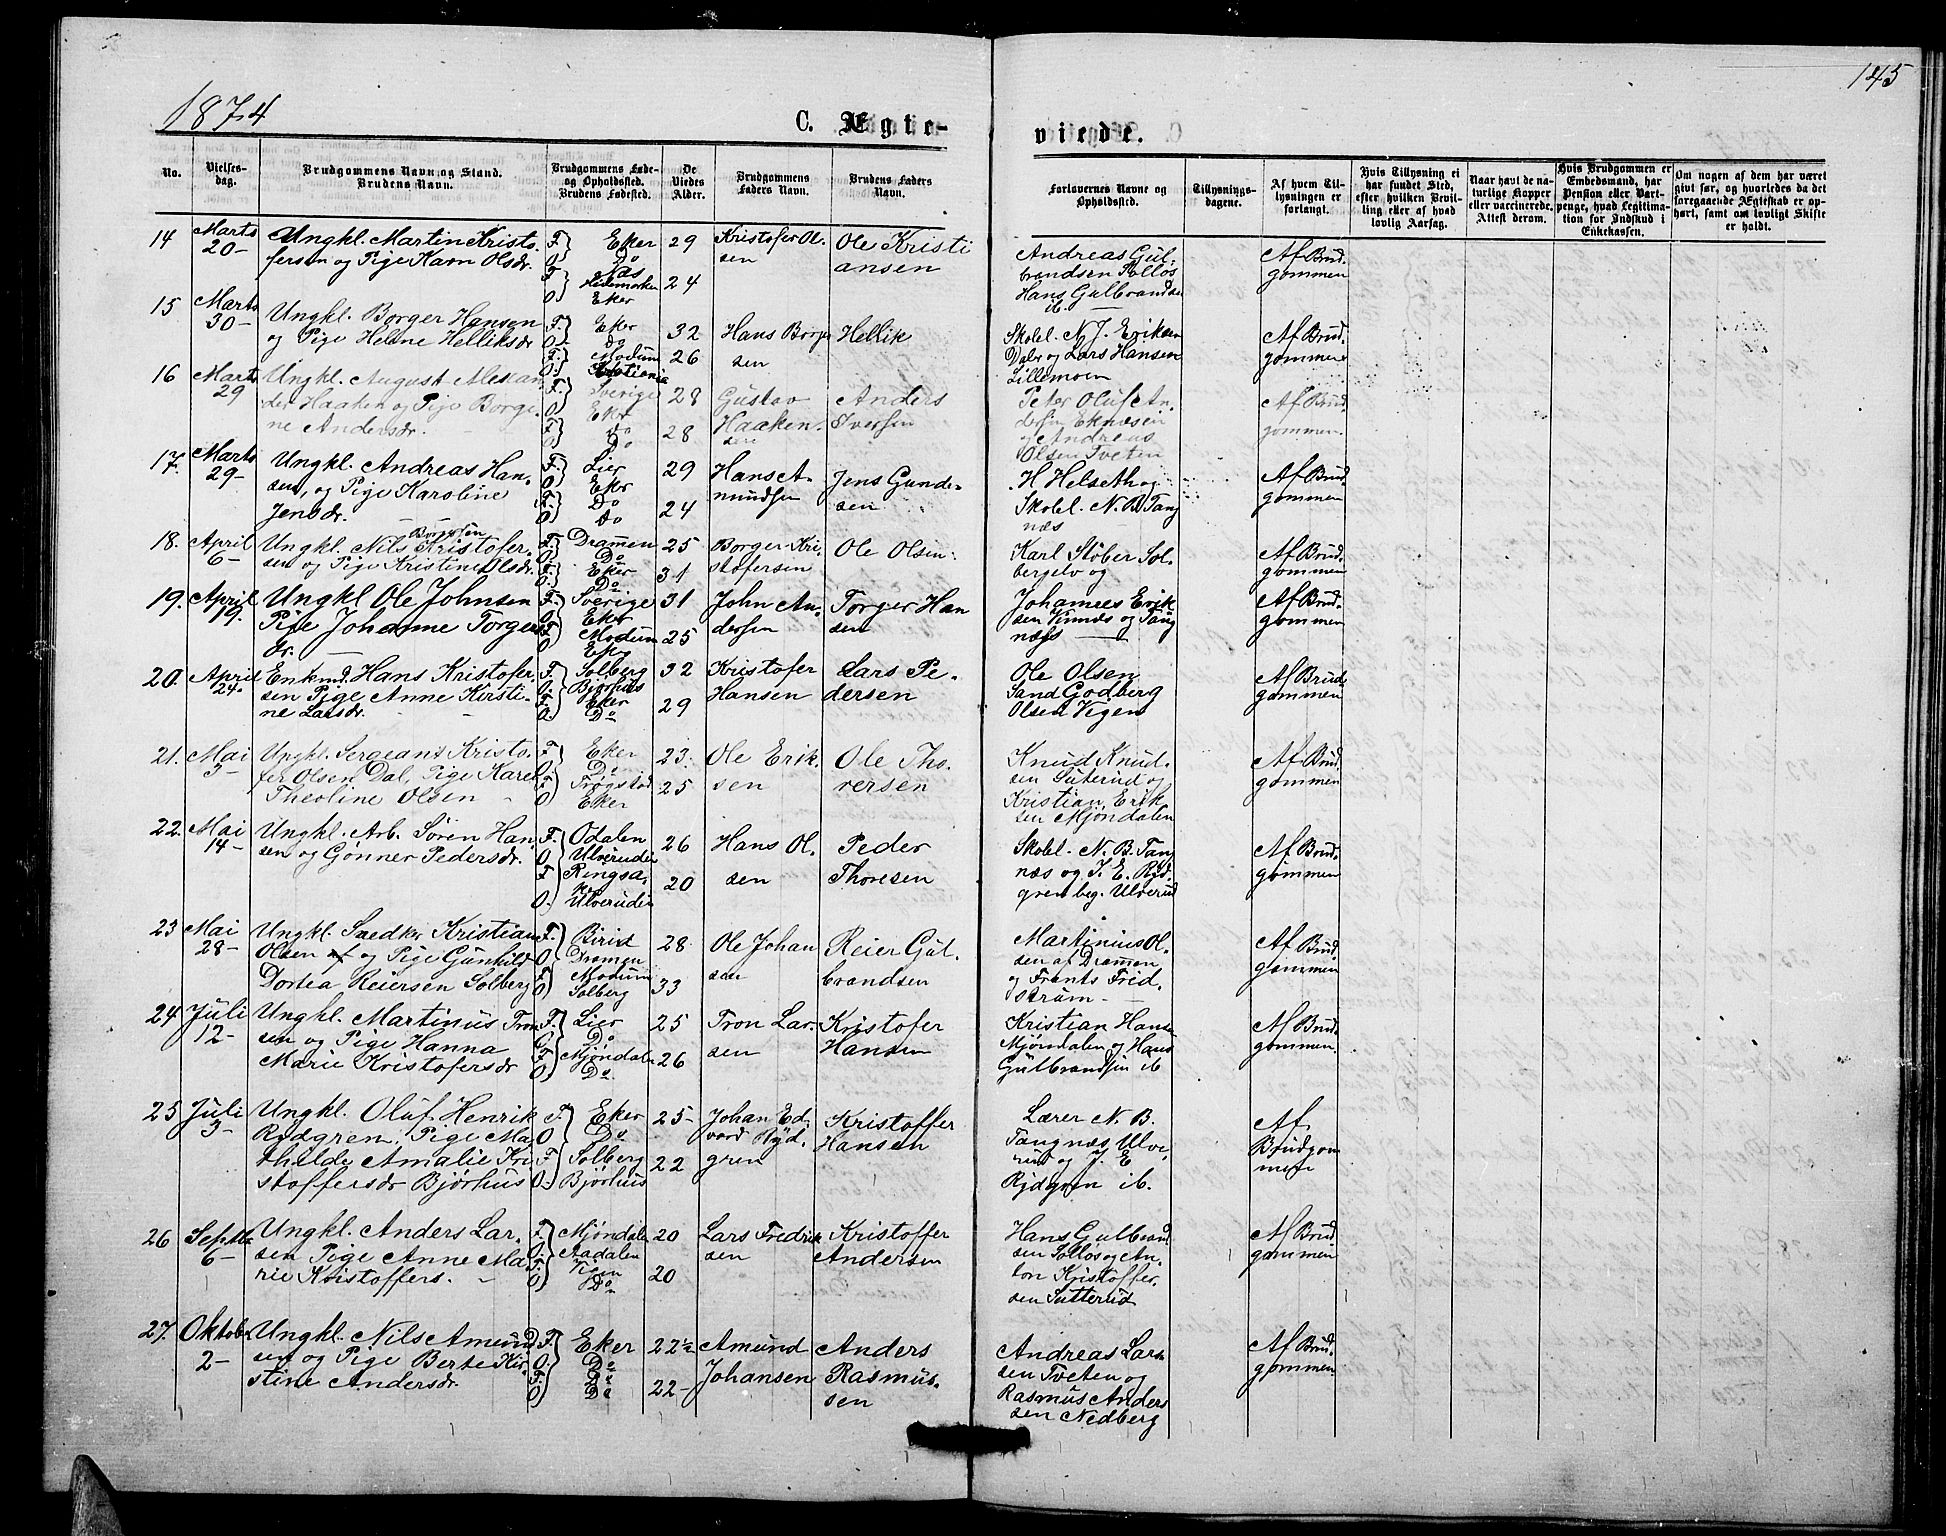 145
1874
C. Ægte-
viede.
No.
Vielses-
dag.
Brudgommens Navn og Stand.
Brudens Navn.
Brudgommens Føde-
og Opholdssted.
Brudens Fødested.
De
Viedes
Alder.
Brudgommens
Faders Navn.
Brudens Faders
Navn.
Forlovernes Navne og
Opholdssted.
Tillysnings-
dagene.
Af hvem Til-
lysningen er
forlangt.
Hvis Tillysning ei
har fundet Sted,
efter hvilken Bevil-
ling eller af hvad
lovlig Aarsag.
Naar havt de na-
turlige Kopper
eller vaccinerede.
Attest derom.
Hvis Brudgommen er
Embedsmand, har
Pension eller Vart-
penge, hvad Legitima-
tion for Indskud i
Enkekassen.
Om nogen af dem har været
gift før, og hvorledes da det
foregaaende Ægteskab er op-
hørt, samt om lovligt Skifte
er holdt.
14 Marts 20-
Ungkl. Martin Kristo-
fersen og Pige Karn Olsdr.
F. Eker
O. Do
F. Næs Hedemarken
O. Eker
29
24
Kristofer Ol-
sen
Ole Kristi
ansen
Andreas Gul-
brandsen Sollos
Hans Gulbrandsen
ib.
Af Brud-
gommen
15 Marts 30-
Ungkl. Borger Hansen
og Pige Helene Helliksdr
F. Eker
O. do
F. Modum
O. Kristiania
32
26
Hans Borger
sen
Hellik
Skolel. N. J. Eriksen
Daler og Lars Hansen
Lillemoen
Af Brud-
gommen
16 Marts 29
Ungkl. August Alexan
der Haaken og Pige Borge-
ne Andersdr.
F. Sverige
O. Eker
F. Do
O. Do
28
28
Gustav
Haaken-
sen
Anders
Iversen
Peter Oluf An-
dersen Eknæsen
og Andreas
Olsen Tveten
Af Brud-
gommen.
17. Marts 29-
Ungkl. Andreas Han-
sen, og Pige Karoline
Jensdr.
F. Lier
O. Eker
F. Do
O. Do
29
24
Hans A-
mundsen
Jens Gunde-
sen
H Helseth og
Skolel. N. B. Tang
næs
Af Brud-
gommen
18. April 6-
Borgersen
Ungkl. Nils Kristofer-
sen og Pige Kristine Olsdr.
F. Dramen
O. Do
F. Eker
O. Do
25
31
Borger Kri-
stofersen
Ole Olsen
Karl Støber Sol-
bergelv og
Af Brud-
gommen
19. April 19.
Ungkl Ole Johnsen
Pige Johanne Torgers
dr.
F. Sverige
O. Eker
F. Modum
O. Eker
31
25
John An-
dersen
Torger Han
sen
Johannes Erik
sen Vinnæs og Tang
næs
Af Brud-
gommen
20. April 24.
Enkmd. Hans Kristofer-
sen Pige Anne Kirsti-
ne Larsdr.
F. Solberg
O. Bjørhus
F. Eker
O. Do
32
29
Kristofer
Hansen
Lars Pe-
dersen
Ole Olsen
Sand Godberg
Olsen Vegen
Af Brud-
gommen
21. Mai 3-
Ungkl. Sergeant Kristo-
fer Olsen Dal, Pige Karen
Theoline Olsen
F. Eker
O. Do
F. Trøgstad
O. Eker
23.
25
Ole Erik-
sen
Ole Tho-
rersen
Knud Knud-
sen Suterud og
Kristian Erik
sen Mjøndalen
Af Brud-
gommen
22. Mai 14-
Ungkl. Arb. Søren Han
sen og Gønner Pedersdr.
F. Odalen
O. Ulveruden
F. Ringsa-
ker
O. Ulveruden
26
20
Hans Ol-
sen
Peder
Thoresen
Skolel. N. B. Tang
næs og J. E. Ryd-
gren beg. Ulverud
Af Brud-
gommen
23 Mai 28-
Ungkl. Snedker Kristian
Olsen af og Pige Gunhild
Dortea Reiersen Solberg
F. Birid
O. Dramen
F. Modum
O. Solberg
28.
33
Ole Johan
sen
Reier Gul-
brandsen
Martinius Ol-
sen af Dramen
og Frants Frid-
strøm
Af Brud
gommen
24 Juli 12-
Ungkl. Martinus Tron
sen og Pige Hanna
Marie Kristofersdr
F. Lier
O. Do
F. Mjøndalen
O. Do
25
26
Tron Lar-
sen
Kristofer
Hansen
Kristian Hansen
Mjøndalen og Hans
Gulbrandsen ib
Af Brud-
gommen
25 Juli 3-
Ungkl. Oluf Henrik
Rydgren, Pige Ma-
thilde Amalie Kri-
stoffersdr Bjørhus
F. Eker
O Do
F Solberg
O. Bjørhus
25-
22
Johan Ed-
vard Ryd-
gren
Kristoffer
Hansen
Lærer N. B.
Tangnæs Ulve-
rud og J. E
Rydgren ib.
Af
Brudgom
men
26 Septb 6-
Ungkl. Anders Lar-
sen Pige Anne Ma-
rie Kristoffers.
F. Mjøndalen
O. Aadalen
F. Vigen
O Do
20
20
Lars Fredrik
sen
Kristoffer
Andersen
Hans Gulbrand
sen Sollos og An-
ton Kristoffer-
sen Sutterud
Af Brud
gommen
27. Oktober 2-
Ungkl. Nils Amund
sen og Pige Berte Kir-
stine Andersdr.
F. Eker
O. Do
F. Do
O Do
22½
22-
Amund
Johansen
Anders
Rasmus-
sen
Andreas Lar-
sen Tveten og
Rasmus Anders
sen Nedberg
Af Brud-
gommen